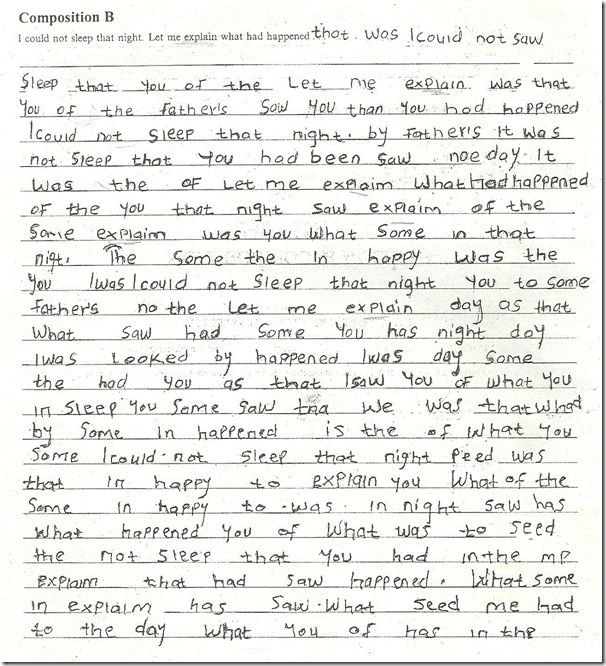 Composition B
I could not sleep that night. Let me explain what had happened that. was Icould not saw
Sleep that you of the Let me explain was that
You of the father's saw You than You had happened
Icould not sleep that night. by Father's it was
not sleep that you had been saw noe day It
was the of Let me explaim what Had happened
of the you that night saw explaim of the
Some explaim was you what some in that
night. The Some the In happy was the
You Iwas Icould not sleep that night You to some
Father's no the Let me explain day as that
What saw had Some You has night day
Iwas Looked by happened Iwas day Some
the had you as that Isaw you of what you
in sleep you some saw tha we was that what
by some in happened is the of what you
Some Icould not sleep that night peed was
that In happy to explain you what of the
Some in happy to was in night saw has
what happened you of what was to seed
the not sleep that you had in the mp
explaim that had saw happened. What some
in explaim has saw. What seed me had
to the day what you of has in the